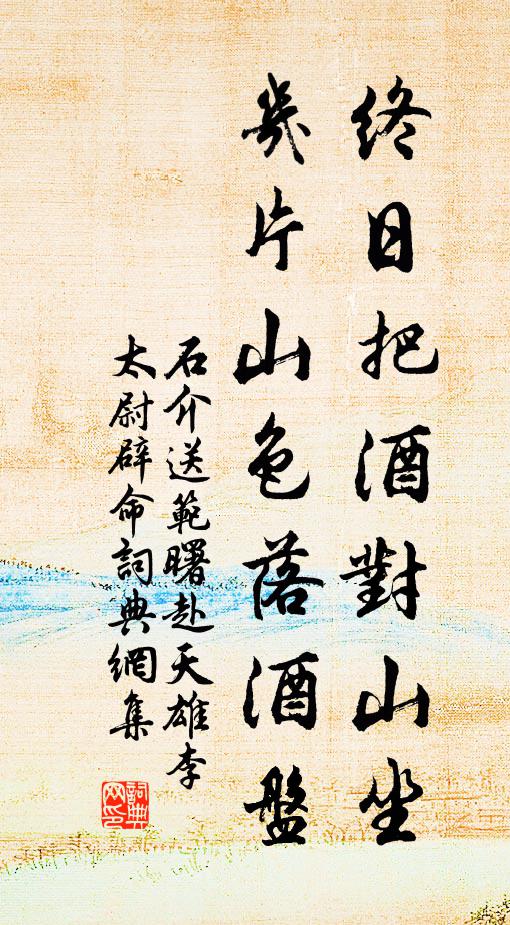 終日把酒對山坐
幾片山色落酒盤
石介送範曙赴天雄李
太尉辟命詞典網集
詞典網印